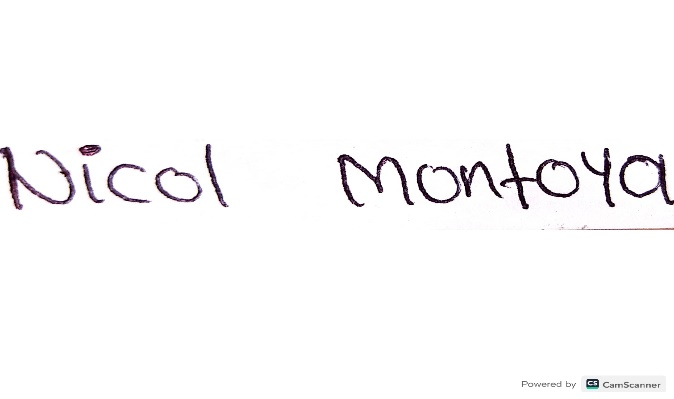 Nicol Montoya
Powered by CS CamScanner